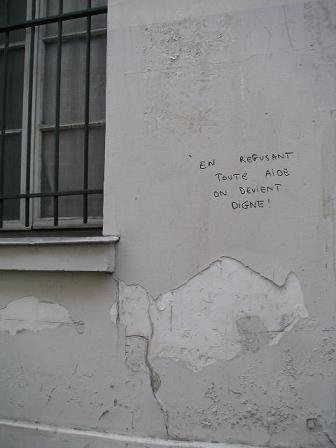 EN REFUSANT
TOUTE AIDE
ON DEVIENT
DIGNE!